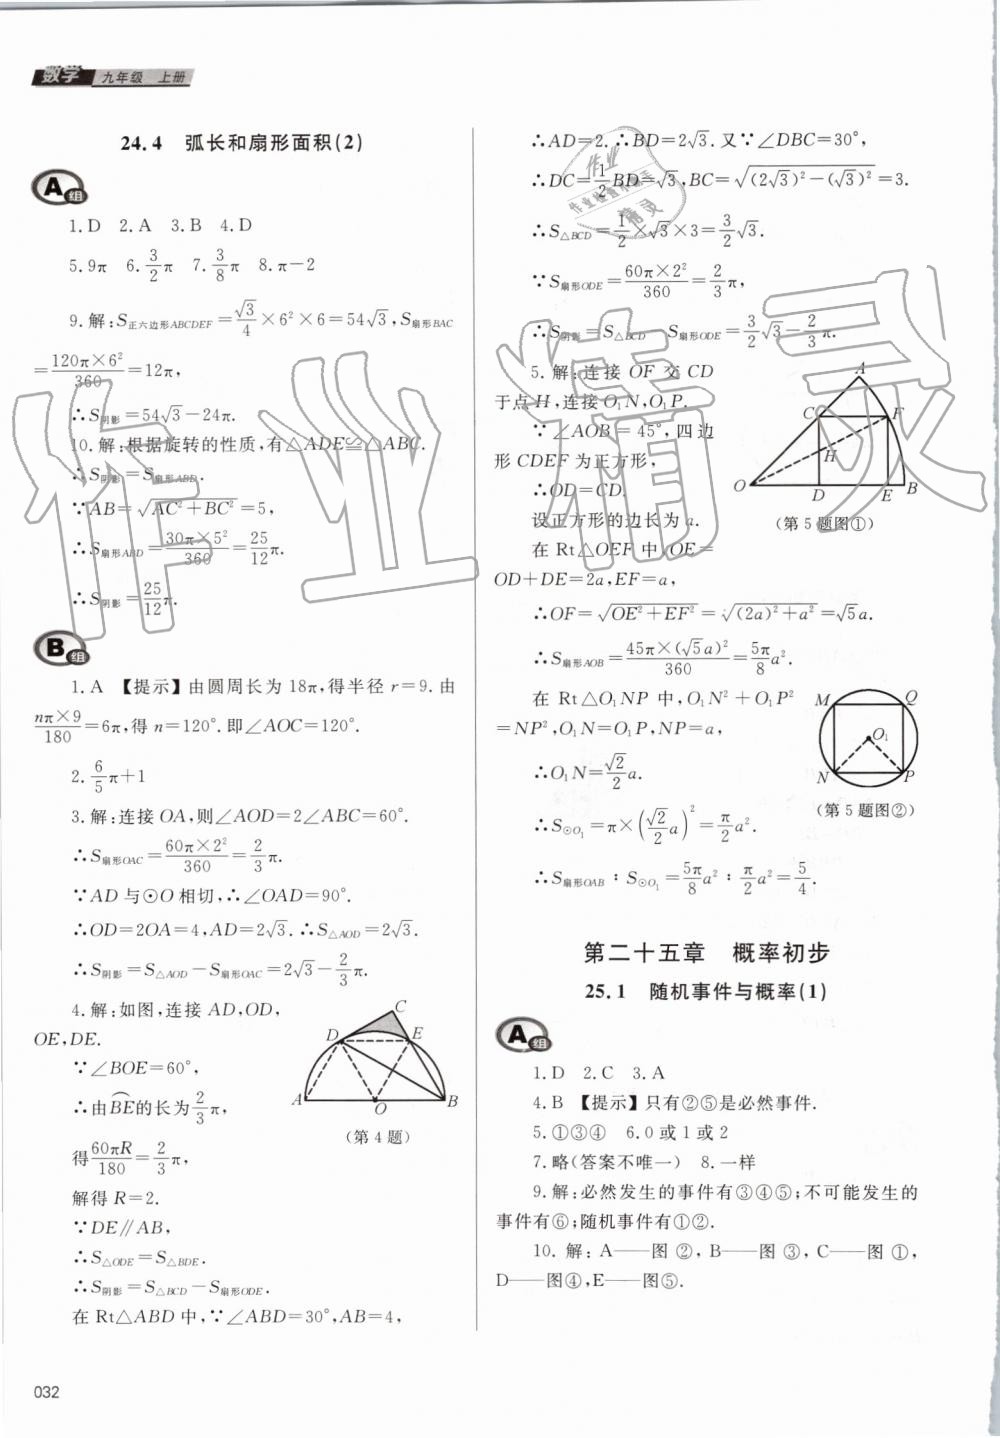 数学 九年级 上册
24.4 弧长和扇形面积(2)
A组
1.D 2.A 3.B 4.D
5.9π 6.3/2π 7.3/8π 8.π−2
9.解:S正六边形ABCDEF=√3/4×6²×6=54√3,S扇形BAC
=120π×6²/360=12π,
∴S阴影=54√3−24π.
10.解:根据旋转的性质,有△ADE≌△ABC.
∴S阴影=S扇形ABD.
∵AB=√(AC²+BC²)=5,
∴S扇形ABD=30π×5²/360=25/12π.
∴S阴影=25/12π.
B组
1.A 【提示】由圆周长为18π,得半径r=9.由
nπ×9/180=6π,得n=120°.即∠AOC=120°.
2.6/5π+1
3.解:连接OA,则∠AOD=2∠ABC=60°.
∴S扇形OAC=60π×2²/360=2/3π.
∵AD与⊙O相切,∴∠OAD=90°.
∴OD=2OA=4,AD=2√3.∴S△AOD=2√3.
∴S阴影=S△AOD−S扇形OAC=2√3−2/3π.
4.解:如图,连接AD,OD,
OE,DE.
∵∠BOE=60°,
∴由BE⌒的长为2/3π,
得60πR/180=2/3π,
解得R=2.
∵DE∥AB,
∴S△ODE=S△BDE.
∴S阴影=S△BCD−S扇形ODE.
在Rt△ABD中,∵∠ABD=30°,AB=4,
A O B D E C
(第4题)
∴AD=2.∴BD=2√3.又∵∠DBC=30°,
∴DC=1/2BD=√3,BC=√((2√3)²−(√3)²)=3.
∴S△BCD=1/2×√3×3=3/2√3.
∵S扇形ODE=60π×2²/360=2/3π,
∴S阴影=S△BCD−S扇形ODE=3/2√3−2/3π.
5.解:连接OF交CD
于点H,连接O₁N,O₁P.
∵∠AOB=45°,四边
形CDEF为正方形,
∴OD=CD.
设正方形的边长为a.
在Rt△OEF中,OE=
OD+DE=2a,EF=a,
A C F H O D E B
(第5题图①)
∴OF=√(OE²+EF²)=√((2a)²+a²)=√5a.
∴S扇形AOB=45π×(√5a)²/360=5π/8a².
在Rt△O₁NP中,O₁N²+O₁P²
=NP²,O₁N=O₁P,NP=a,
∴O₁N=√2/2a.
∴S⊙O₁=π×(√2/2a)²=π/2a².
∴S扇形OAB:S⊙O₁=5π/8a²:π/2a²=5/4.
M Q O₁ N P
(第5题图②)
第二十五章 概率初步
25.1 随机事件与概率(1)
A组
1.D 2.C 3.A
4.B 【提示】只有②⑤是必然事件.
5.①③④ 6.0或1或2
7.略(答案不唯一) 8.一样
9.解:必然发生的事件有③④⑤;不可能发生的
事件有⑥;随机事件有①②.
10.解:A——图②,B——图③,C——图①,
D——图④,E——图⑤.
032
作业精灵